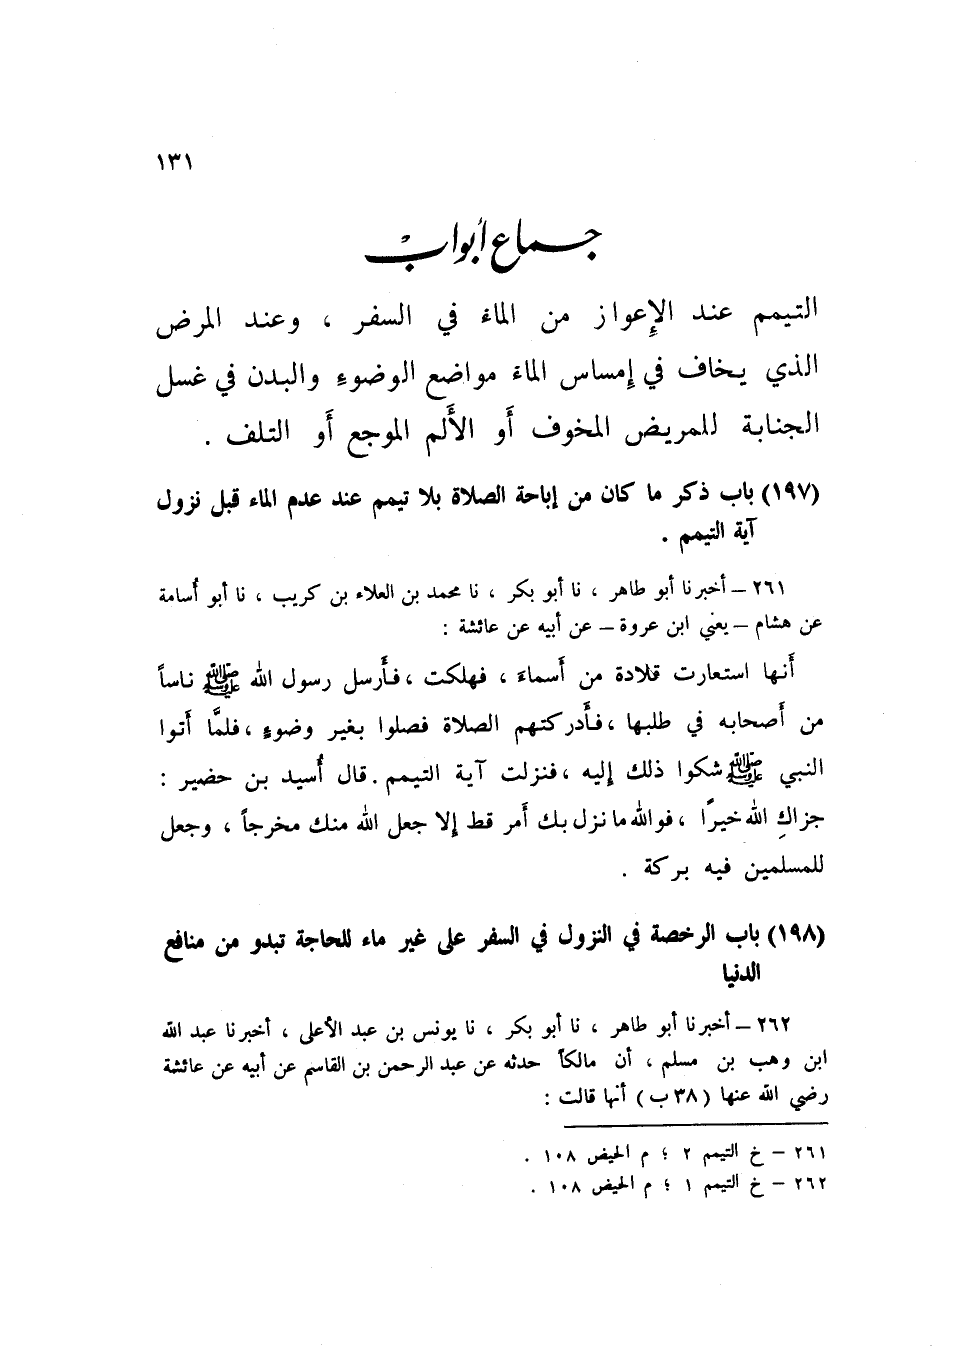 ١٣١
جماع أبواب
التيمم عند الإِعواز من الماءَ في السفر ، وعند المرض
الذي يخاف في إمساس الماءَ مواضع الوضوءِ والبدن في غسل
الجنابة للمريض المخوف أَو الأَلم الموجع أَو التلف .
(١٩٧) باب ذكر ما كان من إباحة الصلاة بلا تيمم عند عدم الماء قبل نزول
آية التيمم .
٢٦١ – أخبرنا أبو طاهر ، نا أبو بكر ، نا محمد بن العلاء بن كريب ، نا أبو أُسامة
عن هشام – يعني ابن عروة – عن أبيه عن عائشة :
أَنها استعارت قلادة من أَسماءَ ، فهلكت ، فأَرسل رسول الله ﷺ ناساً
من أَصحابه في طلبها ، فأَدركتهم الصلاة فصلوا بغير وضوءٍ ، فلمَّا أَتوا
النبي ﷺ شكوا ذلك إليه ، فنزلت آية التيمم . قال أُسيد بن حضير :
جزاكِ الله خيرًا ، فوالله ما نزل بك أمر قط إلا جعل الله منك مخرجاً ، وجعل
للمسلمين فيه بركة .
(١٩٨) باب الرخصة في النزول في السفر على غير ماء للحاجة تبدو من منافع
الدنيا
٢٦٢ – أخبرنا أبو طاهر ، نا أبو بكر ، نا يونس بن عبد الأعلى ، أخبرنا عبد الله
ابن وهب بن مسلم ، أن مالكاً حدثه عن عبد الرحمن بن القاسم عن أبيه عن عائشة
رضي الله عنها (٣٨ ب) أنها قالت :
٢٦١ – خ التيمم ٢ ؛ م الحيض ١٠٨ .
٢٦٢ – خ التيمم ١ ؛ م الحيض ١٠٨ .